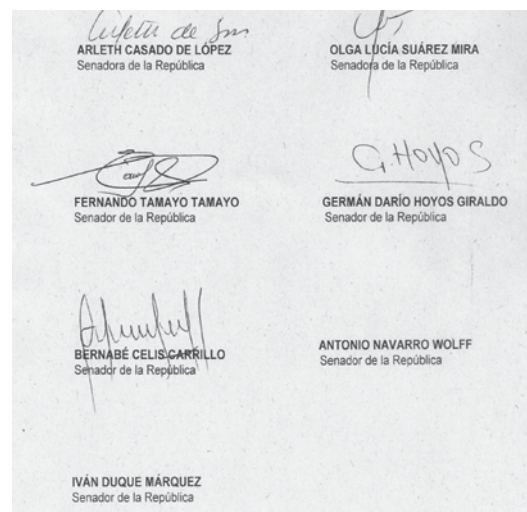 ARLETH CASADO DE LÓPEZ
Senadora de la República
OLGA LUCÍA SUÁREZ MIRA
Senadora de la República
FERNANDO TAMAYO TAMAYO
Senador de la República
G. HOYOS
GERMÁN DARÍO HOYOS GIRALDO
Senador de la República
BERNABÉ CELIS CARRILLO
Senador de la República
ANTONIO NAVARRO WOLFF
Senador de la República
IVÁN DUQUE MÁRQUEZ
Senador de la República